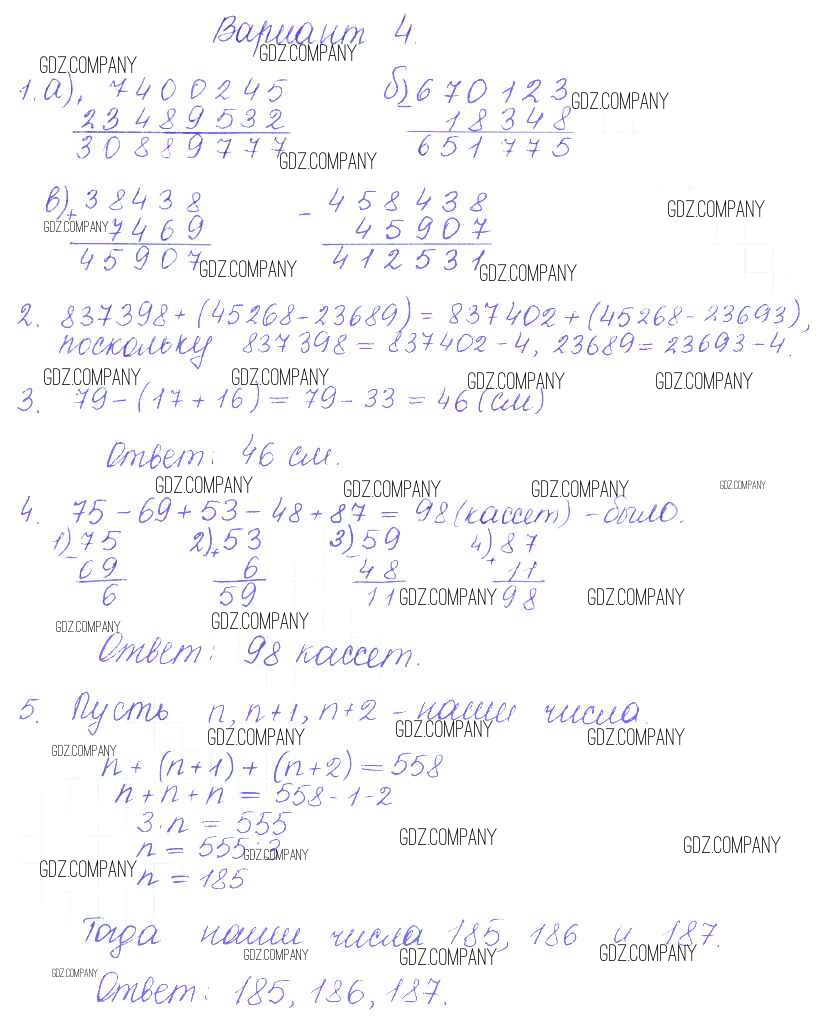 Вариант 4.
GDZ.COMPANY GDZ.COMPANY
1. а) + 7400245 б) - 670123 GDZ.COMPANY
23489532 18348
30889777 651775
GDZ.COMPANY
в) + 38438 - 458438 GDZ.COMPANY
GDZ.COMPANY 7469 45907
45907 GDZ.COMPANY 412531 GDZ.COMPANY
2. 837398 + (45268 - 23689) = 837402 + (45268 - 23693),
поскольку 837398 = 837402 - 4, 23689 = 23693 - 4.
GDZ.COMPANY GDZ.COMPANY GDZ.COMPANY GDZ.COMPANY
3. 79 - (17 + 16) = 79 - 33 = 46 (см)
Ответ: 46 см.
GDZ.COMPANY GDZ.COMPANY GDZ.COMPANY GDZ.COMPANY
4. 75 - 69 + 53 - 48 + 87 = 98 (кассет) - было.
1) - 75 2) + 53 3) - 59 4) + 87
69 6 48 11
6 59 11 GDZ.COMPANY 98 GDZ.COMPANY
GDZ.COMPANY GDZ.COMPANY
Ответ: 98 кассет.
5. Пусть n, n+1, n+2 - наши числа.
GDZ.COMPANY GDZ.COMPANY GDZ.COMPANY
GDZ.COMPANY
n + (n+1) + (n+2) = 558
n + n + n = 558 - 1 - 2
3·n = 555
n = 555 : 3
GDZ.COMPANY GDZ.COMPANY GDZ.COMPANY GDZ.COMPANY
n = 185
Тогда наши числа 185, 186 и 187.
GDZ.COMPANY GDZ.COMPANY GDZ.COMPANY
GDZ.COMPANY
Ответ: 185, 186, 187.